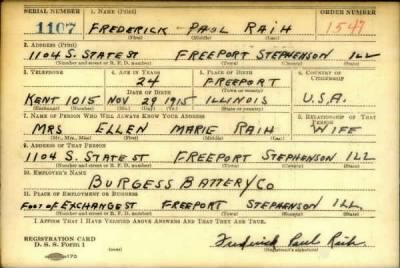 SERIAL NUMBER 1. NAME (Print) ORDER NUMBER
1107 FREDERICK PAUL RAIH 1547
(First) (Middle) (Last)
2. ADDRESS (Print)
1104 S. STATE ST FREEPORT STEPHENSON ILL
(Number and street or R. F. D. number) (Town) (County) (State)
3. TELEPHONE 4. AGE IN YEARS 5. PLACE OF BIRTH 6. COUNTRY OF CITIZENSHIP
24 FREEPORT
DATE OF BIRTH (Town or county)
KENT 1015 NOV 29 1915 ILLINOIS U.S.A.
(Exchange) (Number) (Mo.) (Day) (Yr.) (State or country)
7. NAME OF PERSON WHO WILL ALWAYS KNOW YOUR ADDRESS 8. RELATIONSHIP OF THAT PERSON
MRS ELLEN MARIE RAIH WIFE
(Mr., Mrs., Miss) (First) (Middle) (Last)
9. ADDRESS OF THAT PERSON
1104 S. STATE ST FREEPORT STEPHENSON ILL
(Number and street or R. F. D. number) (Town) (County) (State)
10. EMPLOYER'S NAME
BURGESS BATTERY CO
11. PLACE OF EMPLOYMENT OR BUSINESS
FOOT OF EXCHANGE ST FREEPORT STEPHENSON ILL.
(Number and street or R. F. D. number) (Town) (County) (State)
I AFFIRM THAT I HAVE VERIFIED ABOVE ANSWERS AND THAT THEY ARE TRUE.
REGISTRATION CARD
D. S. S. Form 1 Frederick Paul Raih
(Registrant's signature)